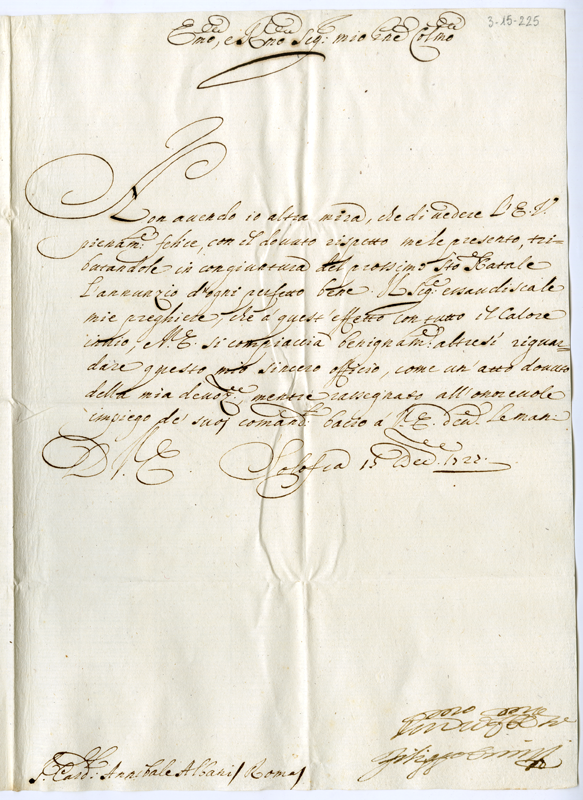 3-15-225
Emo, e Rmo Sig.r mio Pne Colmo
Non auendo io altra mira, che di uedere L'E.V.
pienam.te felice, con il douuto rispetto me le presento, tri-
butandole in congiuntura del prossimo Sto Natale
l'annunzio d'ogni perfetto bene. Il Sig.r essaudisca le
mie preghiere, che a quest'effetto con tutto il Calore
inuio, e V.E. si compiaccia benignam.te altresì riguar-
dare questo mio sincero officio, come un atto douuto
della mia deuoz.ne, mentre rassegnato all'onoreuole
impiego de' suoj comand.i bacio a V.E. le man.
D. V. E.
Solofra 15 Dec. 1722
Filippo
S.r Card.l Annibale Albani / Roma /